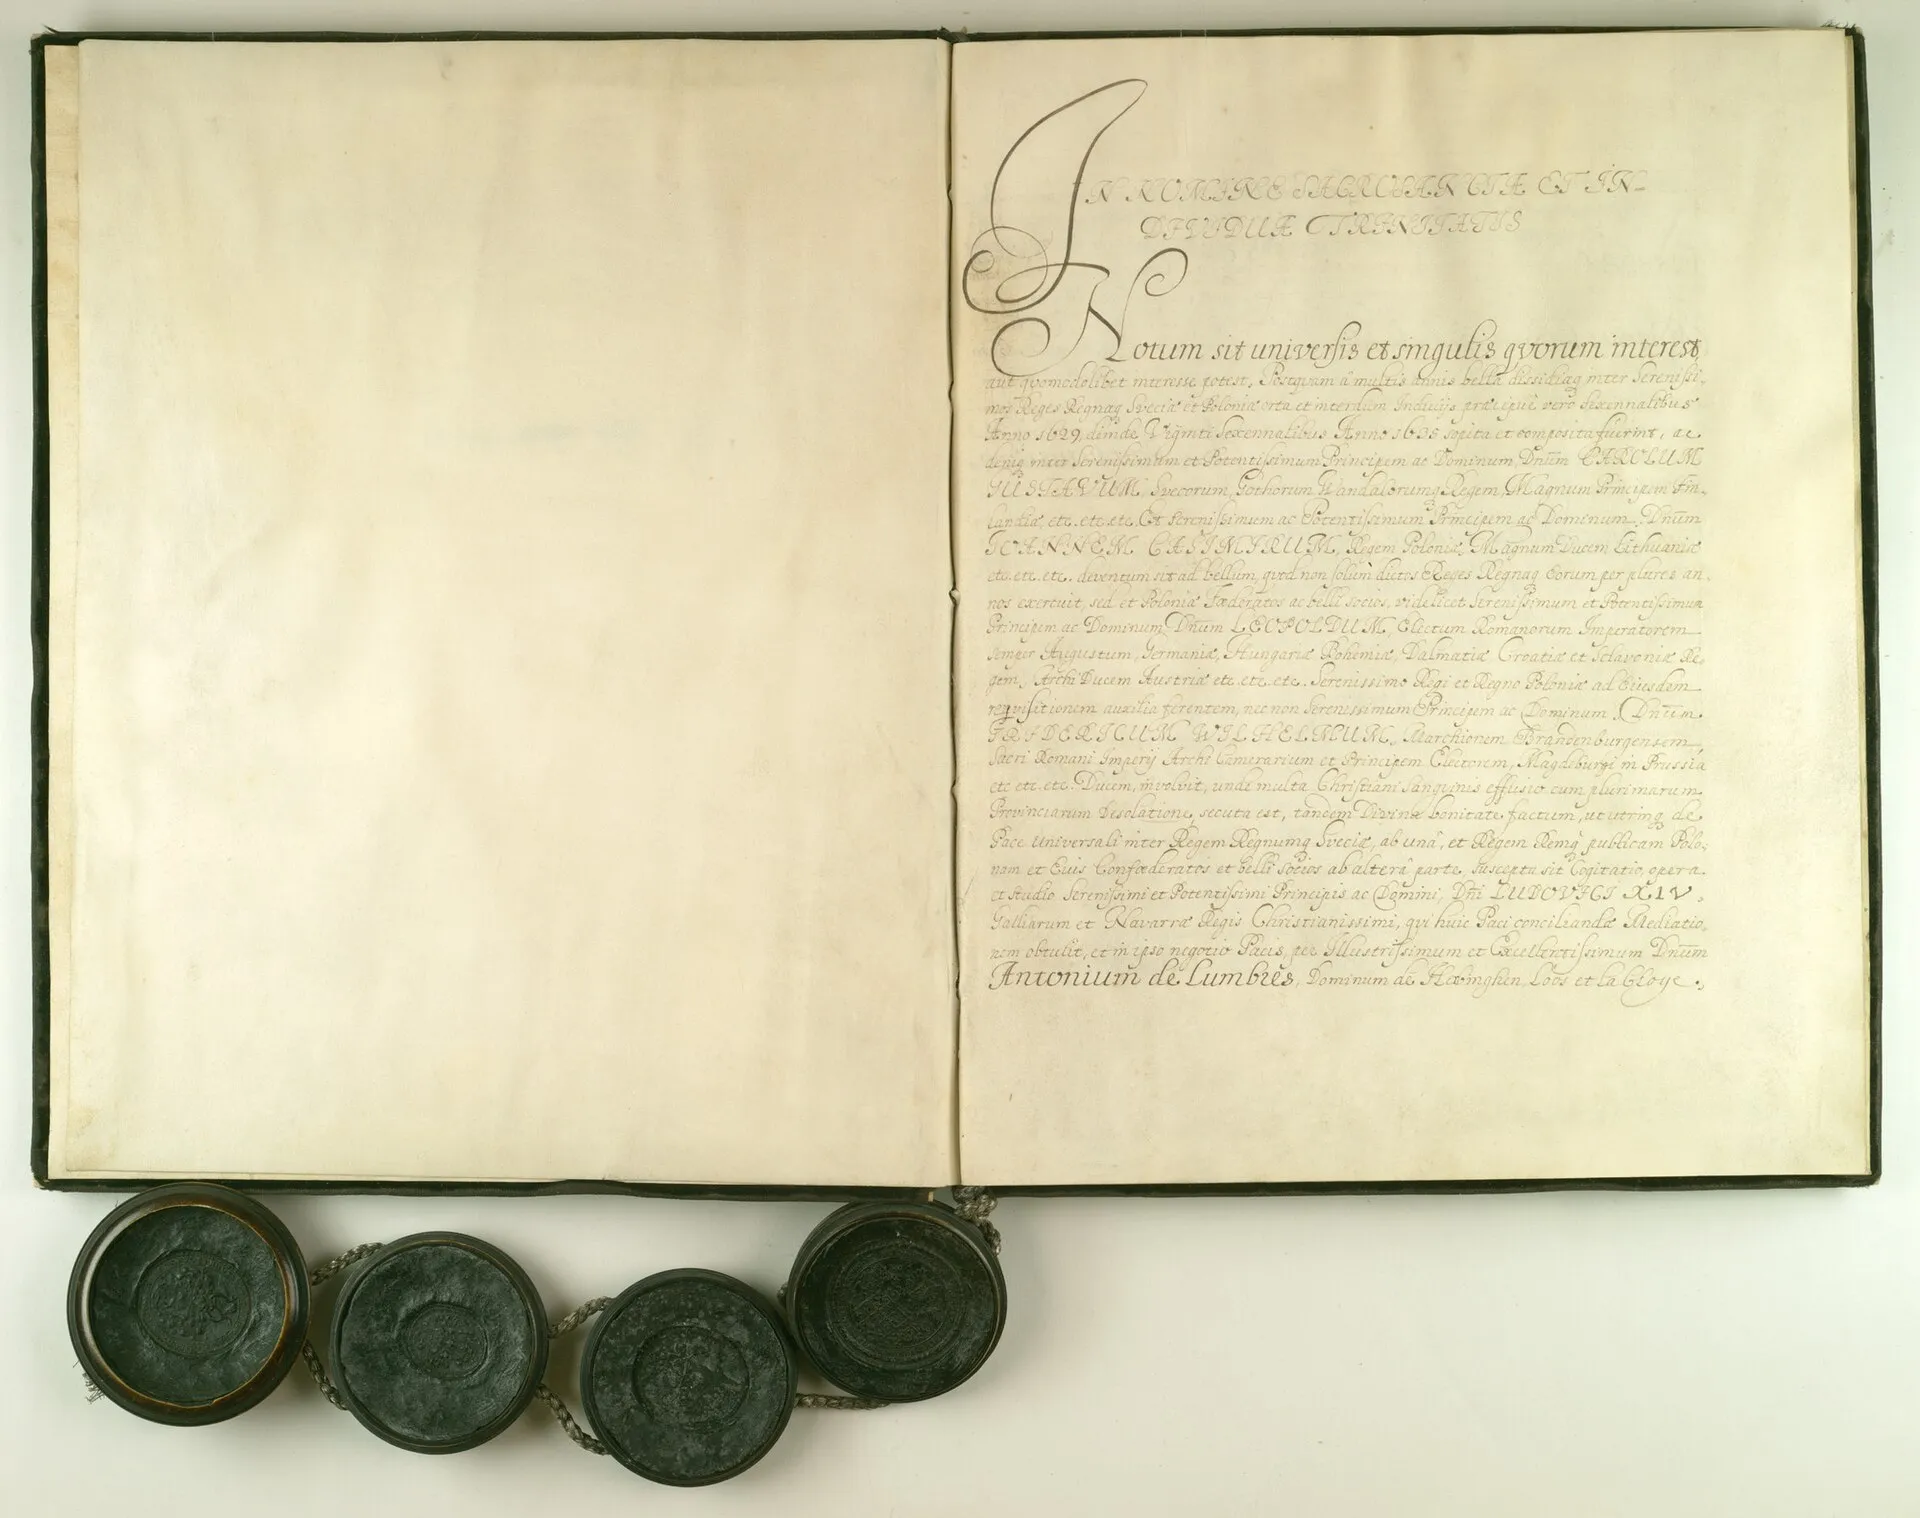 IN NOMINE SACROSANCTÆ ET IN-
DIVIDUÆ TRINITATIS
Notum sit universis et singulis qvorum interest,
aut qvomodolibet interesse potest, Postqvam â multis annis bella dissidiaq inter Serenissi-
mos Reges Regnaq Sveciæ et Poloniæ orta et interdum Inducijs præcipuè vero Sexennalibus
Anno 1629, deinde Viginti Sexennalibus Anno 1635 sopita et composita fuerint, ac
deniq inter Serenissimum et Potentissimum Principem ac Dominum, Dnūm CAROLUM
GUSTAVUM, Svecorum, Gothorum Wandalorumq Regem, Magnum Principem Fin-
landiæ, etc. etc. etc. Et Serenissimum ac Potentissimum Principem ac Dominum, Dnūm
IOANNEM CASIMIRUM, Regem Poloniæ, Magnum Ducem Lithuaniæ
etc. etc. etc. deventum sit ad bellum, qvod non solùm dictos Reges Regnaq Eorum per plures an-
nos exercuit, sed et Poloniæ Fœderatos ac belli socios, videlicet Serenissimum et Potentissimum
Principem ac Dominum, Dnūm LEOPOLDUM, Electum Romanorum Imperatorem
semper Augustum, Germaniæ, Hungariæ Bohemiæ, Dalmatiæ Croatiæ et Sclavoniæ Re-
gem, Archi Ducem Austriæ etc. etc. etc. Serenissimo Regi et Regno Poloniæ ad Eiusdem
reqvisitionem auxilia ferentem, nec non Serenissimum Principem ac Dominum, Dnūm
FRIDERICUM WILHELMUM, Marchionem Brandenburgensem,
Sacri Romani Imperij Archi Camerarium et Principem Electorem, Magdeburgi in Prussia
etc etc. etc. Ducem, involvit, unde multa Christiani sanguinis effusio cum plurimarum
Provinciarum desolatione, secuta est, tandem Divina bonitate factum, ut utrinq de
Pace Universali inter Regem Regnumq Sveciæ, ab unâ, et Regem Remq publicam Polo-
nam et Eius Confœderatos et belli socios ab alterâ parte, suscepta sit Cogitatio, opera
et studio Serenissimi et Potentissimi Principis ac Domini, Dni LUDOVICI XIV.
Galliarum et Navarræ Regis Christianissimi, qvi huic Paci conciliandæ Mediatio-
nem obtulit, et in ipso negotio Pacis, per Illustrissimum et Excellentissimum Dnūm
Antonium de Lumbres, Dominum de Herbinghen, Loos et la Cloye.,